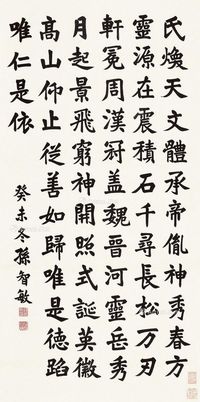 氏煥天文體承帝胤神秀春方
靈源在震積石千尋長松万刃
軒冕周漢冠盖魏晉河靈岳秀
月起景飛窮神開照式誕英徽
高山仰止從善如歸唯是德蹈
唯仁是依
癸未冬孫智敏